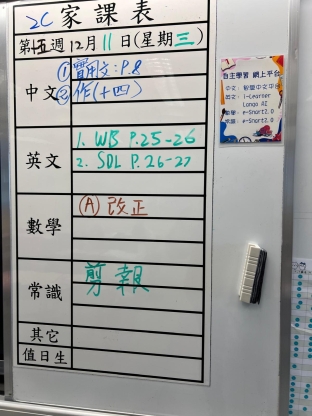 2C 家課表
第十五週12月11日(星期三)
中文
① 實用文:P.8
② 作(十四)
英文
1. WB P.25-26
2. SDL P.26-27
數學
(A) 改正
常識
剪報
其它
值日生
自主學習 網上平台
中文:智愛中文平台
英文:i-Learner
Longo AI
數學:e-Smart2.0
常識:e-Smart2.0